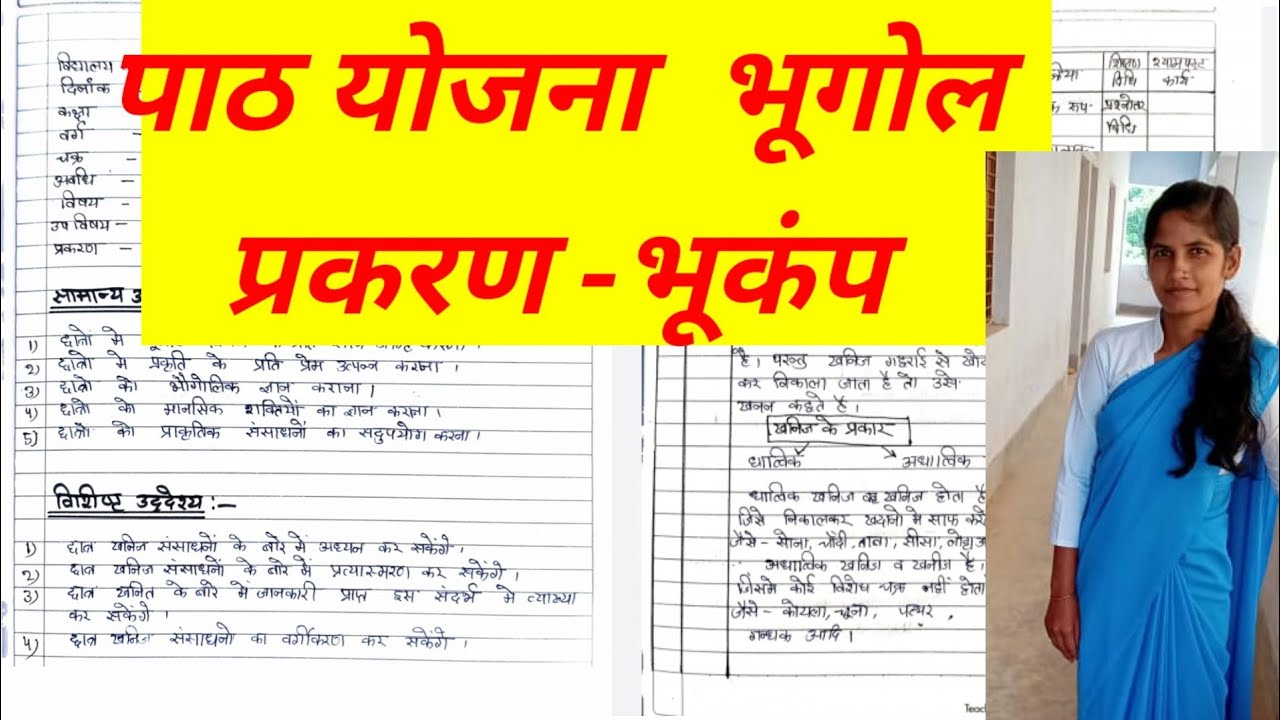 पाठ योजना भूगोल
प्रकरण - भूकंप
विद्यालय
दिनांक
कक्षा
वर्ग -
चक्र -
अवधि -
विषय -
उप विषय -
प्रकरण -
सामान्य उ
1) छात्रों में
2) छात्रों में प्रकृती के प्रति प्रेम उत्पन्न करना।
3) छात्रों को भौगोलिक ज्ञान कराना।
4) छात्रों को मानसिक शक्तियों का ज्ञान कराना।
5) छात्रों को प्राकृतिक संसाधनों का सदुपयोग करना।
विशिष्ट उद्देश्य :-
1) छात्र खनिज संसाधनों के बारे में अध्यन कर सकेंगे।
2) छात्र खनिज संसाधनों के बारे में प्रत्यास्मरण कर सकेंगे।
3) छात्र खनिज के बारे में जानकारी प्राप्त इस संदर्भ में व्याख्या
कर सकेंगे।
4) छात्र खनिज संसाधनो का वर्गीकरण कर सकेंगे।
शिक्षण विधि
श्यामपट्ट कार्य
क रूप- प्रश्नोतर
विधि
है। परन्तु खनिज गहराई से खोद
कर निकाला जाता है तो उसे
खनन कहते है।
खनिज के प्रकार
धात्विक अधात्विक
धात्विक खनिज वह खनिज होता है
जिसे निकालकर खदानो में साफ करे
जैसे - सोना, चाँदी, तांबा, सीसा,
अधात्विक खनिज व खनीज है।
जिसमें कोई विशेष चक्र नहीं होता
जैसे - कोयला, चूना, पत्थर,
गन्धक आदि।
Teac